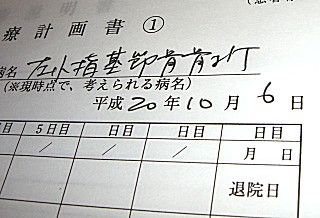 療計画書 ①
病名 左小指基節骨骨折
(※現時点で、考えられる病名)
平成 20 年 10 月 6 日
日目 5日目 日目 日目 日目
/ / / 月 日
退院日